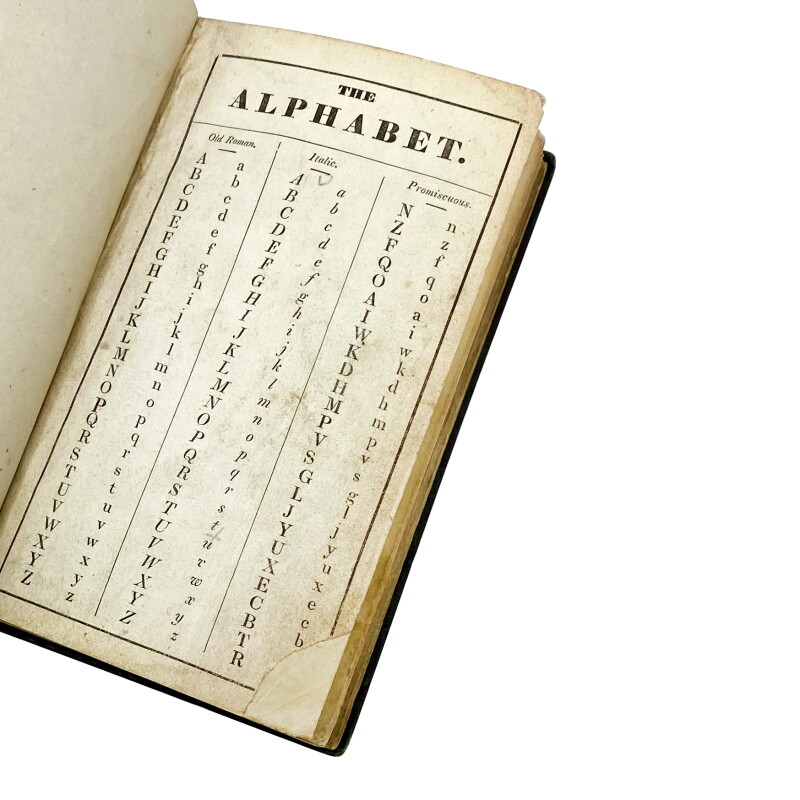 THE
ALPHABET.
Old Roman.
A a
B b
C c
D d
E e
F f
G g
H h
I i
J j
K k
L l
M m
N n
O o
P p
Q q
R r
S s
T t
U u
V v
W w
X x
Y y
Z z
Italic.
A a
B b
C c
D d
E e
F f
G g
H h
I i
J j
K k
L l
M m
N n
O o
P p
Q q
R r
S s
T t
U u
V v
W w
X x
Y y
Z z
Promiscuous.
N n
Z z
F f
Q q
O o
A a
I i
W w
K k
D d
H h
M m
P p
V v
S s
G g
L l
J j
Y y
U u
X x
E e
C c
B b
T
R